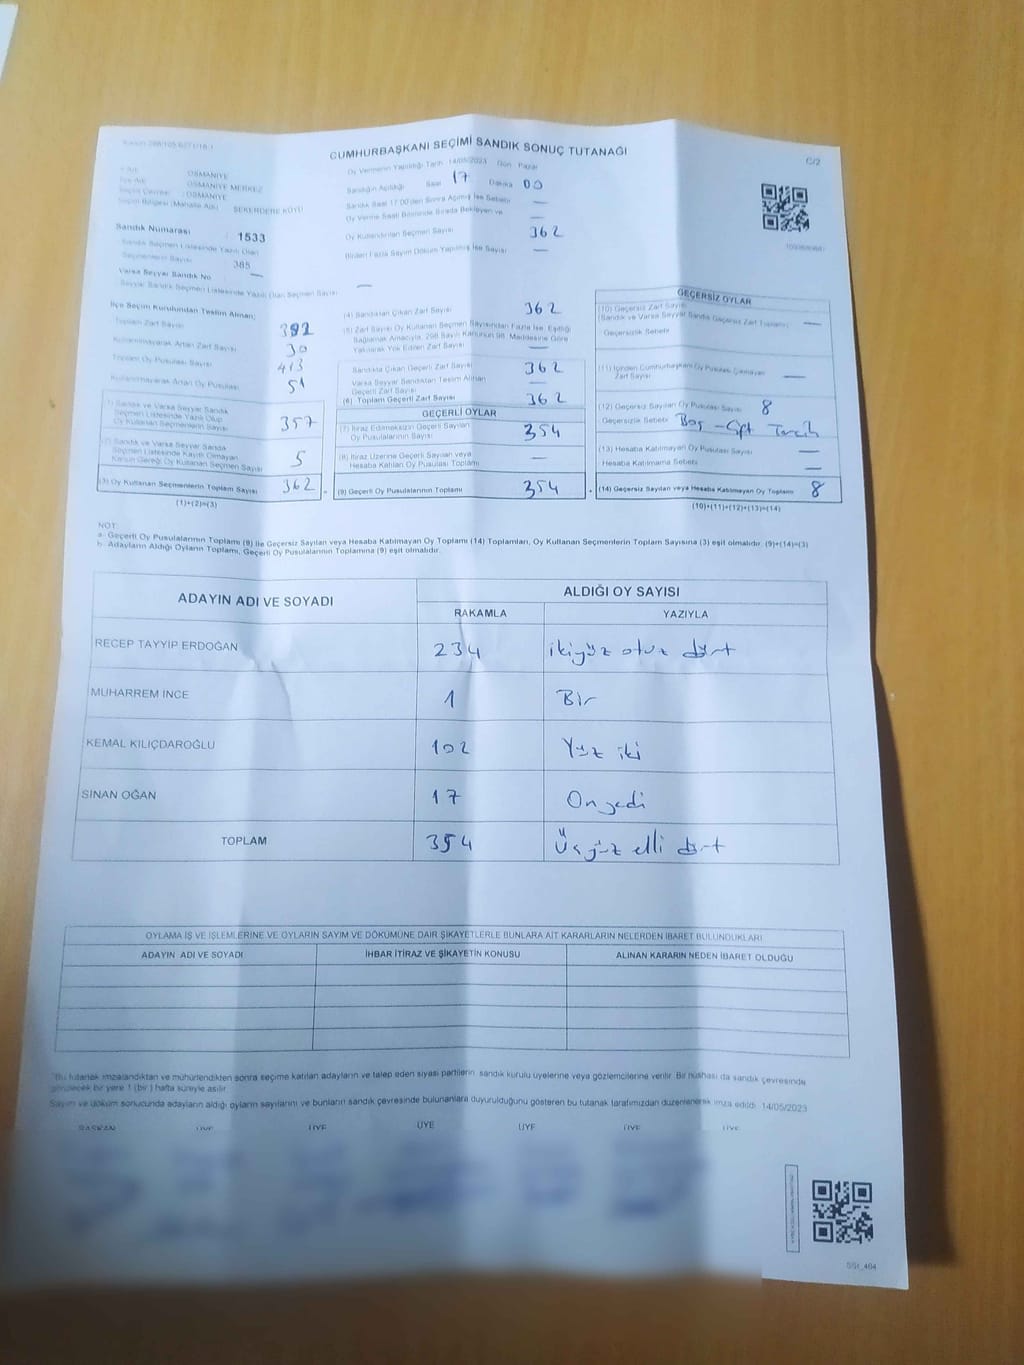 CUMHURBAŞKANI SEÇİMİ SANDIK SONUÇ TUTANAĞI
C/2
Oy Vermenin Yapıldığı Tarih 14/05/2023 Gün Pazar
OSMANİYE
OSMANİYE MERKEZ
OSMANİYE
Seçim Bölgesi (Mahalle Adı) ŞEKERDERE KÖYÜ
Sandığın Açıldığı Saat 17 Dakika 00
Sandık Saat 17:00'den Sonra Açılmış İse Sebebi —
Oy Verme Saati Bitiminde Sırada Bekleyen ve —
Oy Kullandırılan Seçmen Sayısı 362
Birden Fazla Sayım Döküm Yapılmış İse Sayısı —
Sandık Numarası 1533
Sandık Seçmen Listesinde Yazılı Olan
Seçmenlerin Sayısı 385
Varsa Seyyar Sandık No —
Seyyar Sandık Seçmen Listesinde Yazılı Olan Seçmen Sayısı —
İlçe Seçim Kurulundan Teslim Alınan;
Toplam Zarf Sayısı 392
Kullanılmayarak Artan Zarf Sayısı 30
Toplam Oy Pusulası Sayısı 413
Kullanılmayarak Artan Oy Pusulası 51
(1) Sandık ve Varsa Seyyar Sandık
Seçmen Listesinde Yazılı Olup
Oy Kullanan Seçmenlerin Sayısı 357
(2) Sandık ve Varsa Seyyar Sandık
Seçmen Listesinde Kayıtlı Olmayan
Kanun Gereği Oy Kullanan Seçmen Sayısı 5
(3) Oy Kullanan Seçmenlerin Toplam Sayısı 362
(1)+(2)=(3)
(4) Sandıktan Çıkan Zarf Sayısı 362
(5) Zarf Sayısı Oy Kullanan Seçmen Sayısından Fazla İse, Eşitliği
Sağlamak Amacıyla, 298 Sayılı Kanunun 98. Maddesine Göre
Yakılarak Yok Edilen Zarf Sayısı —
Sandıkta Çıkan Geçerli Zarf Sayısı 362
Varsa Seyyar Sandıktan Teslim Alınan
Geçerli Zarf Sayısı —
(6) Toplam Geçerli Zarf Sayısı 362
GEÇERLİ OYLAR
(7) İtiraz Edilmeksizin Geçerli Sayılan
Oy Pusulalarının Sayısı 354
(8) İtiraz Üzerine Geçerli Sayılan veya
Hesaba Katılan Oy Pusulası Toplamı —
(9) Geçerli Oy Pusulalarının Toplamı 354
GEÇERSİZ OYLAR
(10) Geçersiz Zarf Sayısı
(Sandık ve Varsa Seyyar Sandık Geçersiz Zarf Toplamı) —
Geçersizlik Sebebi
(11) İçinden Cumhurbaşkanı Oy Pusulası Çıkmayan
Zarf Sayısı —
(12) Geçersiz Sayılan Oy Pusulası Sayısı 8
Geçersizlik Sebebi Boş - Çift Tercih
(13) Hesaba Katılmayan Oy Pusulası Sayısı —
Hesaba Katılmama Sebebi —
(14) Geçersiz Sayılan veya Hesaba Katılmayan Oy Toplamı 8
(10)+(11)+(12)+(13)=(14)
NOT:
a- Geçerli Oy Pusulalarının Toplamı (9) ile Geçersiz Sayılan veya Hesaba Katılmayan Oy Toplamı (14) Toplamları, Oy Kullanan Seçmenlerin Toplam Sayısına (3) eşit olmalıdır. (9)+(14)=(3)
b- Adayların Aldığı Oyların Toplamı, Geçerli Oy Pusulalarının Toplamına (9) eşit olmalıdır.
ADAYIN ADI VE SOYADI ALDIĞI OY SAYISI
RAKAMLA YAZIYLA
RECEP TAYYİP ERDOĞAN 234 ikiyüz otuz dört
MUHARREM İNCE 1 Bir
KEMAL KILIÇDAROĞLU 102 Yüz iki
SİNAN OĞAN 17 On yedi
TOPLAM 354 Üçyüz elli dört
OYLAMA İŞ VE İŞLEMLERİNE VE OYLARIN SAYIM VE DÖKÜMÜNE DAİR ŞİKAYETLERLE BUNLARA AİT KARARLARIN NELERDEN İBARET BULUNDUKLARI
ADAYIN ADI VE SOYADI İHBAR İTİRAZ VE ŞİKAYETİN KONUSU ALINAN KARARIN NEDEN İBARET OLDUĞU
Bu tutanak imzalandıktan ve mühürlendikten sonra seçime katılan adayların ve talep eden siyasi partilerin, sandık kurulu üyelerine veya gözlemcilerine verilir. Bir nüshası da sandık çevresinde
görülecek bir yere 1 (bir) hafta süreyle asılır.
Sayım ve döküm sonucunda adayların aldığı oyların sayılarını ve bunların sandık çevresinde bulunanlara duyurulduğunu gösteren bu tutanak tarafımızdan düzenlenerek imza edildi. 14/05/2023
BAŞKAN ÜYE ÜYE ÜYE ÜYE ÜYE ÜYE